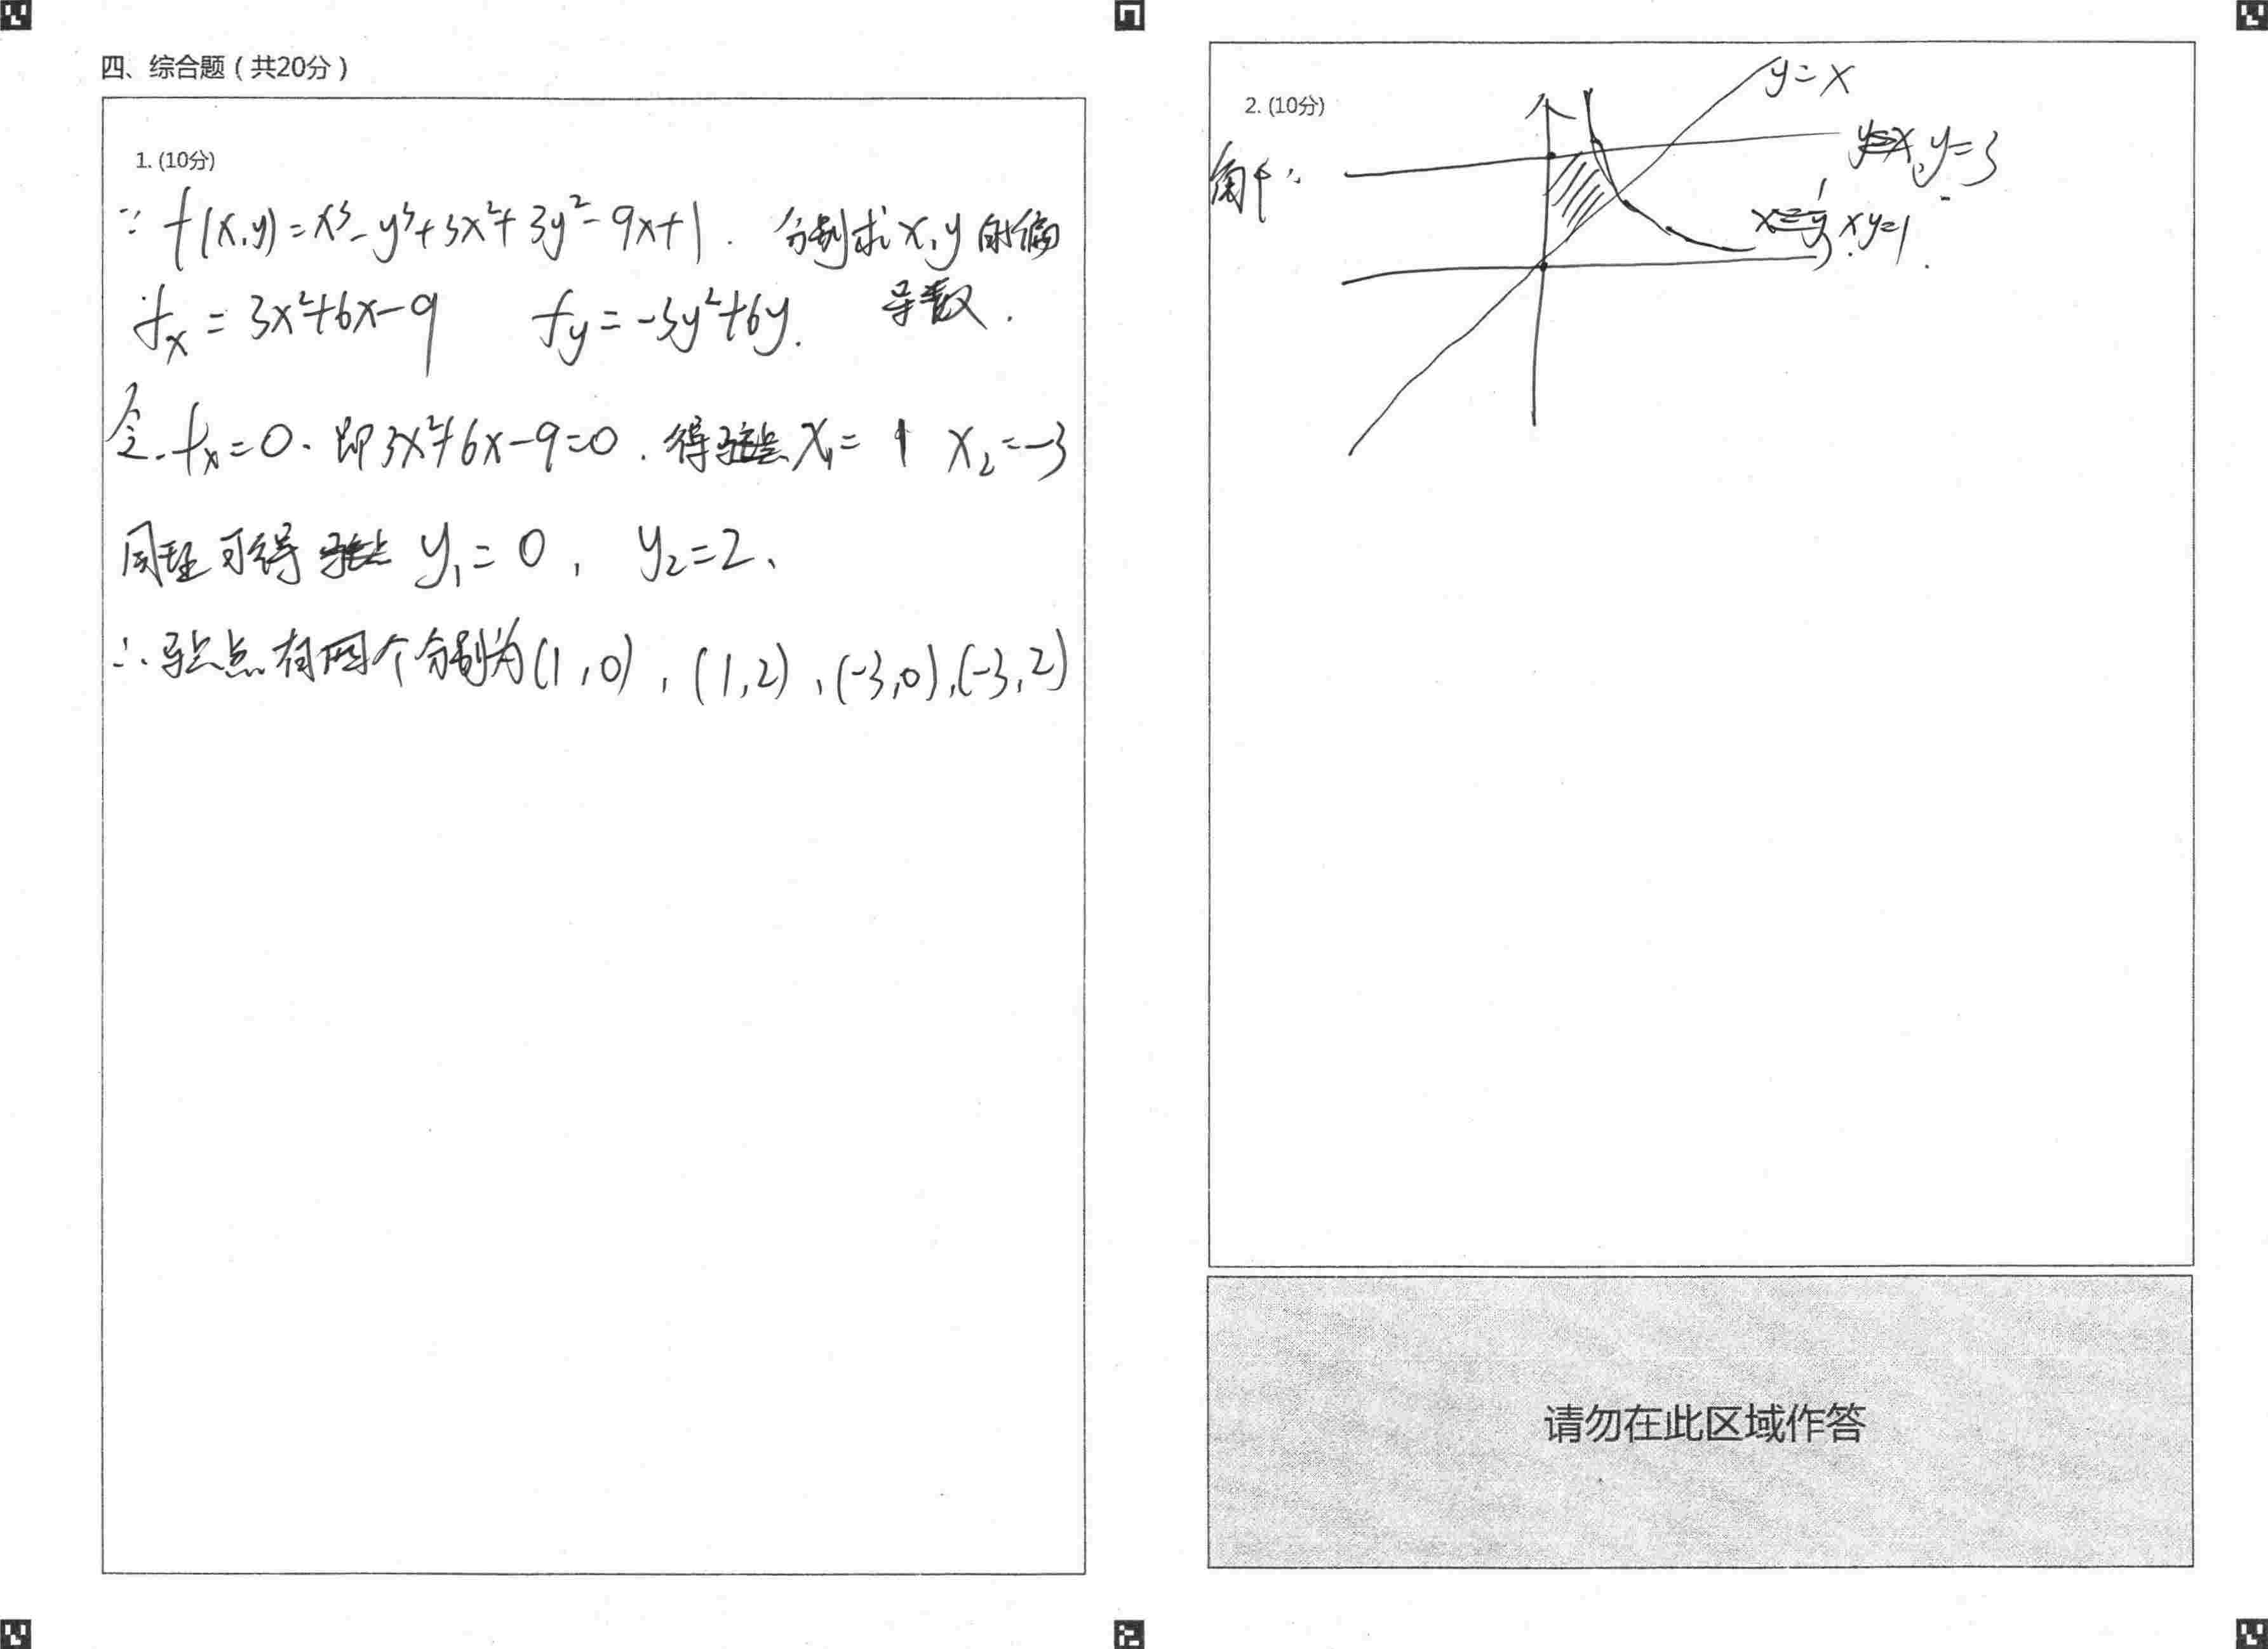 四、综合题（共20分）
1. (10分)
∵ f(x,y)=x³-y³+3x²+3y²-9x+1. 分别求x,y的偏
导数.
fx = 3x²+6x-9 fy=-3y²+6y.
令.fx=0.即3x²+6x-9=0.得 x₁= 1 x₂=-3
同理可得 y₁=0, y₂=2、
∴驻点有四个分别为(1,0),(1,2),(-3,0),(-3,2)
2. (10分)
解：
y=x
y=3
xy=1.
请勿在此区域作答